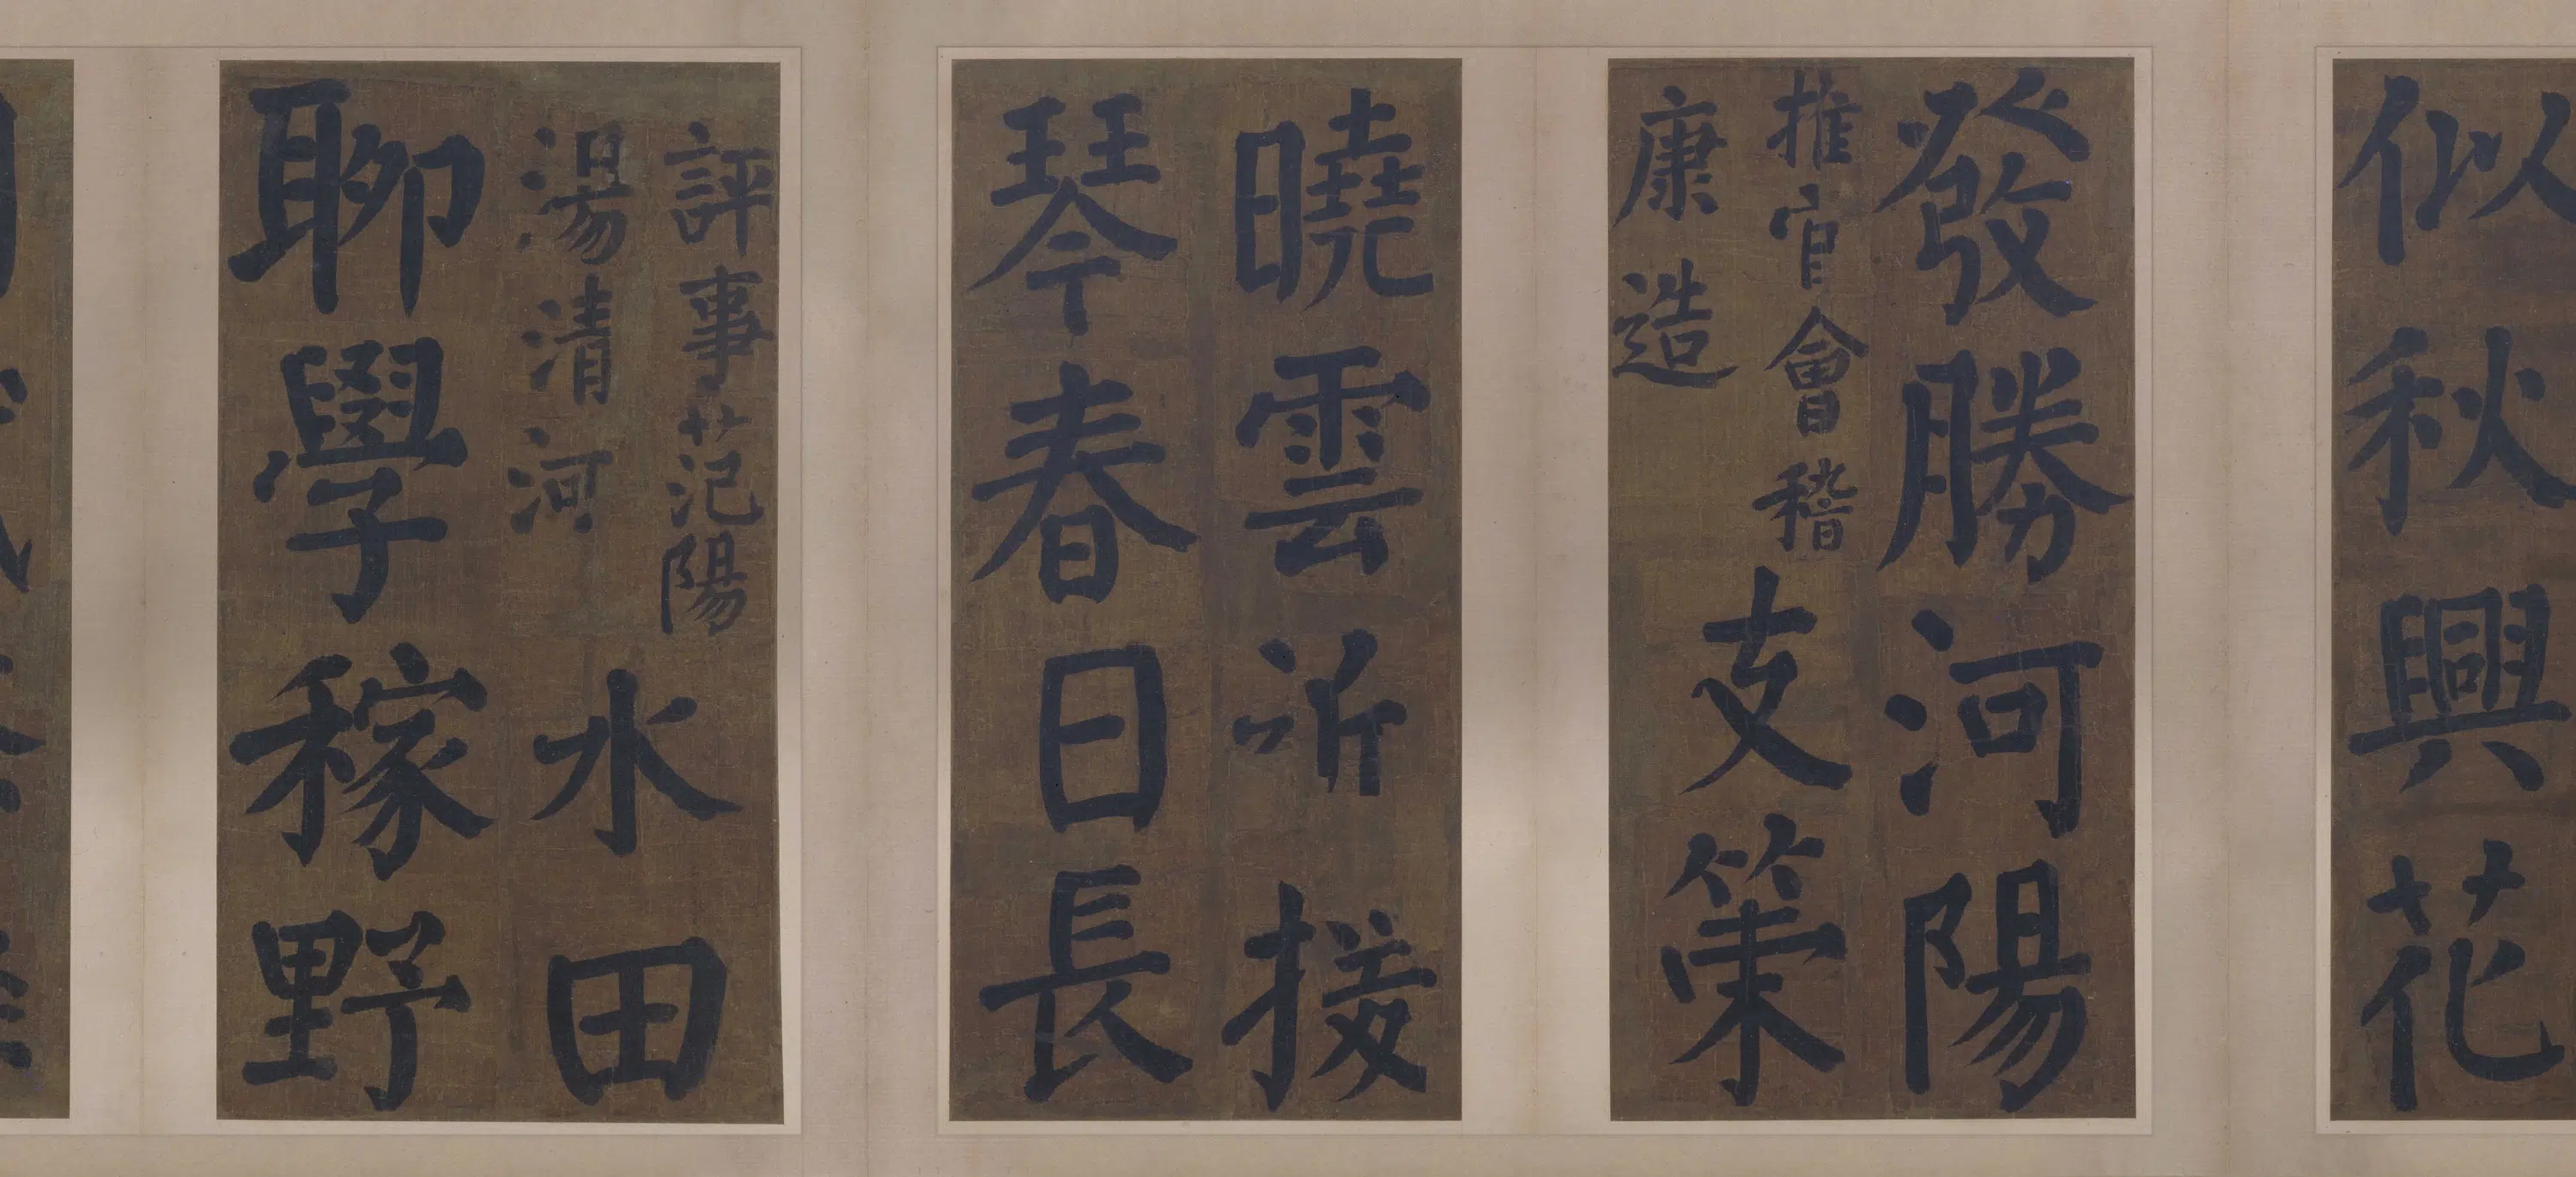 似秋興花
發勝河陽
推官會稽
康造
支策
曉雲近援
琴春日長
評事范陽
湯清河
水田
聊學稼野